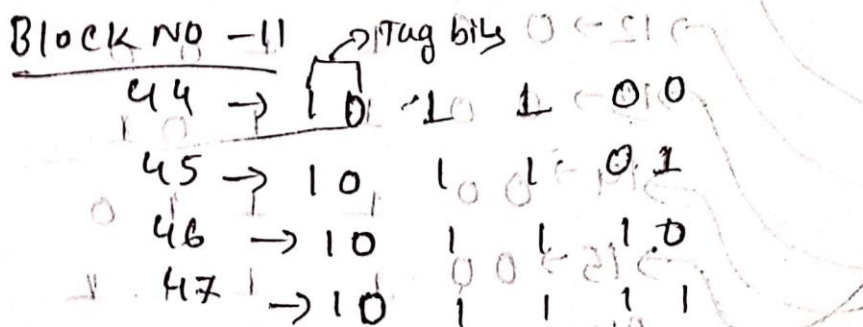 Block NO - 11 → Tag bits
44 → 1 0 1 1 0 0
45 → 1 0 1 1 0 1
46 → 1 0 1 1 1 0
47 → 1 0 1 1 1 1